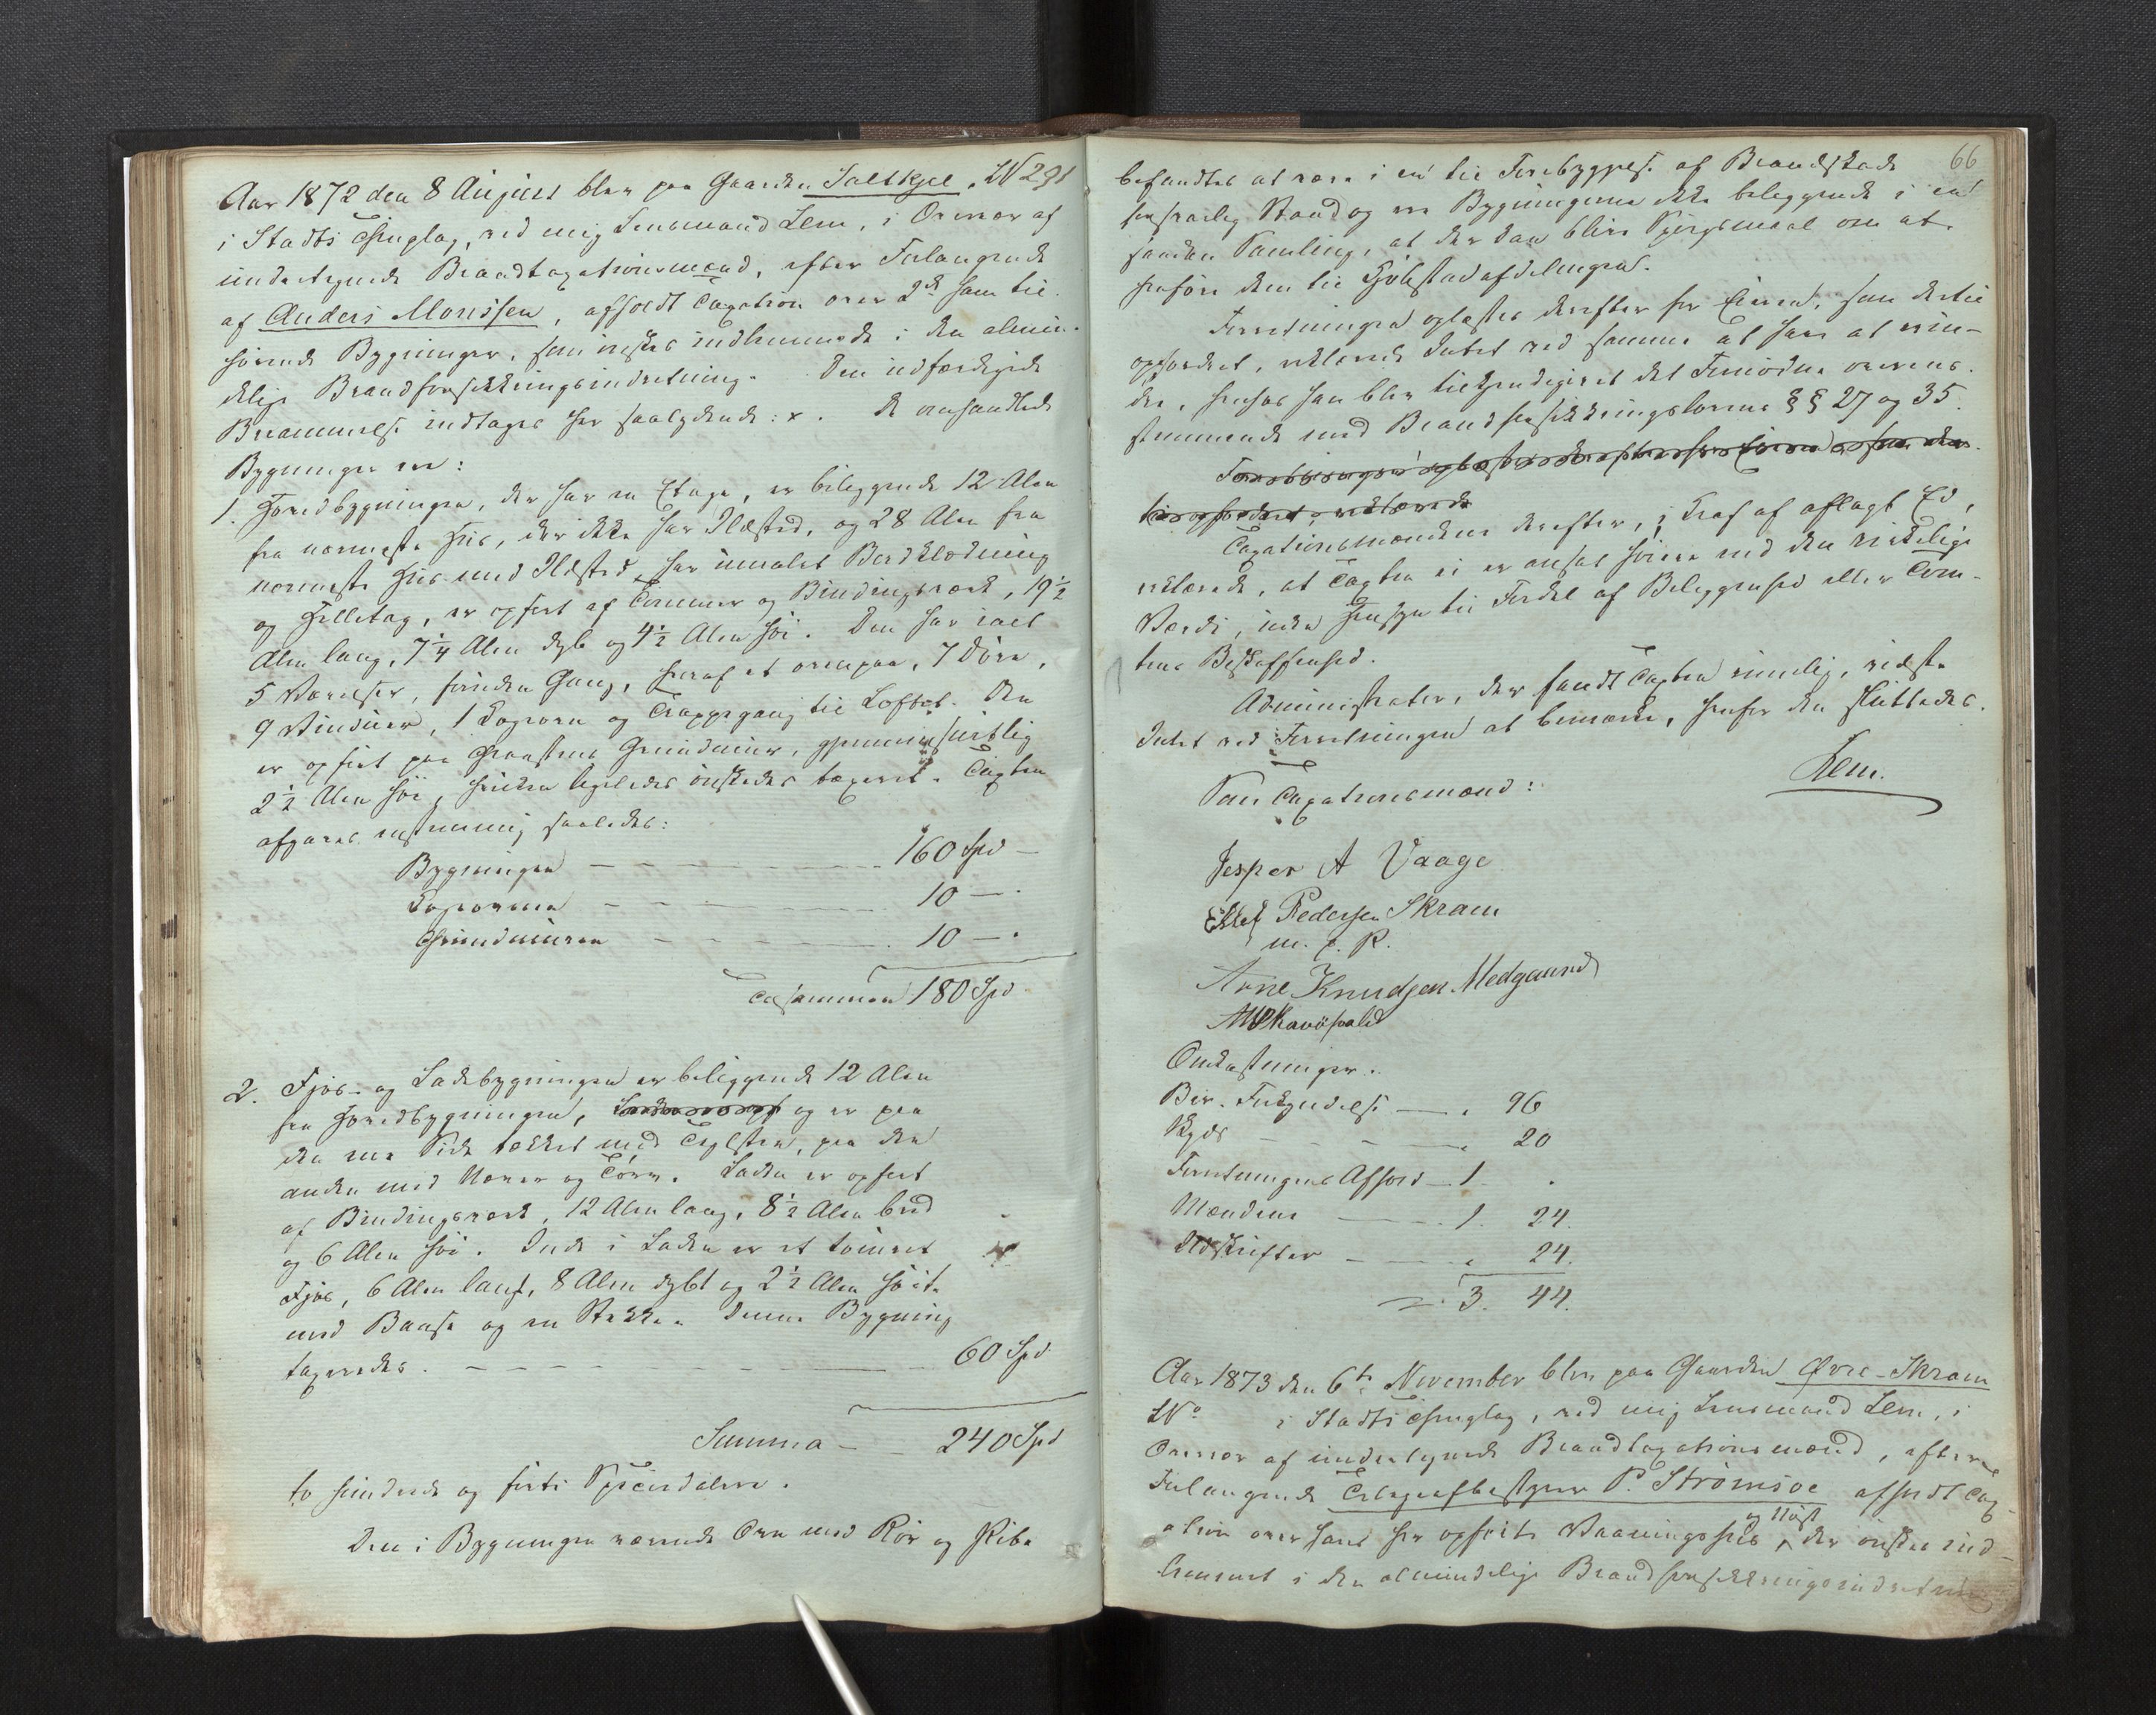 Aar 1872 den 8 August blev paa Gaarden Saltkjel, LN 291
i Stadts Thinglag, ved mig Lensmand Lem, i Overvær af
undertegnede Brandtaxationsmænd, efter Forlangende
af Anders Monssen, afholdt Taxation over 2de ham til-
hørende Bygninger, som ønskes indlemmede i den almin-
delige Brandforsikkringsindretning. Den udfærdigede
Berammelse indtages her saalydende: x. De omhandlede
Bygninger ere:
1. Hovedbygningen, der har en Etage, er beliggende 12 Alen
fra nærmeste Hus, der ikke har Ildsted, og 28 Alen fra
nærmeste Hus med Ildsted, har umalet Bordklædning
og Helletag, er opført af Tømmer og Bindingsværk, 19½
Alen lang, 7¼ Alen dyb og 4½ Alen høi. Den har ialt
5 Værelser, foruden Gang, heraf et ovenpaa, 7 Døre,
9 Vinduer, 1 Kogeovn og Trappegang til Loftet. Den
er opført paa Graastens Grundmur, gjennemsnitlig
2½ Alen høi, hvilken ligeledes ønskedes taxeret. Taxten
afgaves enstemmig saaledes:
Bygningen 160 Spd
Kogeovnen 10 —
Grundmuren 10 —
Tilsammen 180 Spd
2. Fjøs- og Ladebygningen er beliggende 12 Alen
fra Hovedbygningen, og er paa
den ene Side tækket med Teglsten, paa den
anden med Næver og Torv. Laden er opført
af Bindingsværk, 12 Alen lang, 8½ Alen bred
og 6 Alen høi. Inde i Laden er et tømret
Fjøs, 6 Alen langt, 8 Alen dybt og 2½ Alen høit
med Baase og en Stakke. Denne Bygning
taxeredes 60 Spd
Summa — 240 Spd
to hundrede og førti Speciedaler.
Den i Bygningen værende Ovn med Rør og Pibe
66
befandtes at være i en til Forebyggelse af Brandskade
forsvarlig Stand og ere Bygningerne ikke beliggende i en
saadan Samling, at der kan blive Spørgsmaal om at
henføre dem til Kjøbstadafdelingen.
Forretningen oplæstes derefter for Eieren, som dertil
opfordret, erklærede Intet ved samme at have at erin-
dre, hvorhos han blev tilkjendegivet det Fornødne overens-
stemmende med Brandforsikkringslovens §§ 27 og 35.
Forretningen oplæstes derefter for Eieren, som der-
til opfordret, erklærede
Taxationsmændene derefter, i Kraf af aflagt Ed,
erklærede, at Taxten ei er ansat høiere end den virkelige
Værdi, uden Hensyn til Fordel af Beliggenhed eller Tom-
tens Beskaffenhed.
Administrator, der fandt Taxten rimelig, vidste
Intet ved Forretningen at bemærke, hvorfor den sluttedes.
Lem.
Som Taxationsmænd:
Jesper A Vaage
Ellef Pedersen Skram
m. f. P.
Arne Knudsen Medgaard
Omkostninger.
Ber. Forkyndelse — „ 96
Skyds — „ 20
Forretningens Afhold — 1 .
Mændene — 1. 24.
Udskrifter — „ 24.
3. 44.
Aar 1873 den 6te November blev paa Gaarden Øvre-Skram
LNo i Stadts Thinglag, ved mig Lensmand Lem, i
Overvær af undertegnede Brandtaxationsmænd, efter
Forlangende Telegrafbestyrer P. Strømsøe afholdt Tax-
ation over hans her opførte Vaaningshus og Nøst, der ønskes ind-
lemmet i den almindelige Brandforsikkringsindretning